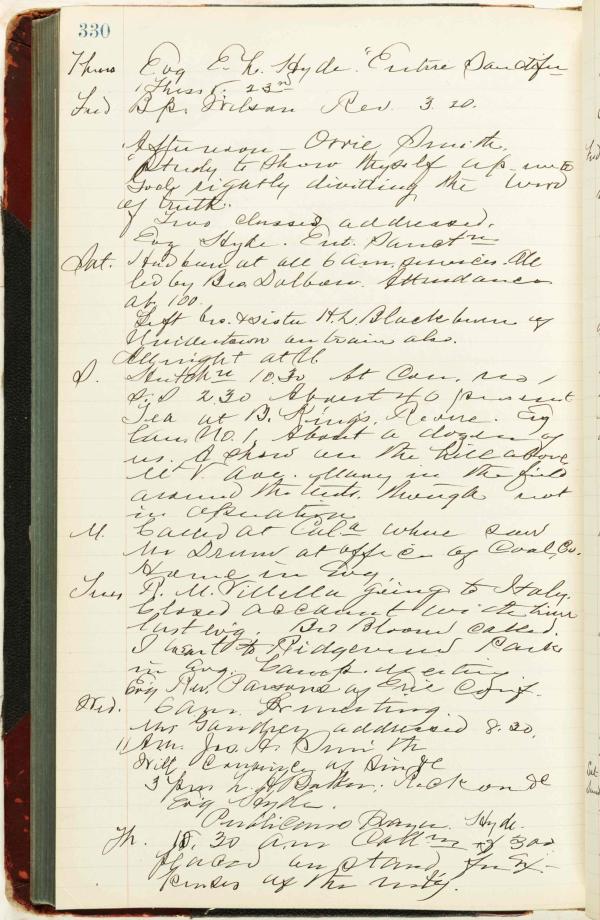 330
Thurs Evg E. L. Hyde. "Entire Sanctifn
1 Thess 5. 23rd
Frid Bp. Wilson Rev. 3 20.
Afternoon - Orrie Smith.
"Study to show thyself ap unto
God rightly dividing the word
of truth.
Two classes addressed.
Evg Hyde. Ent. Sanctn
Sat. Had been at all 6 am services. All
led by Bro Dolbow. Attendance
ab. 100.
Left bro. & sister H. L. Blackburn of
Uniontown on train also.
All night at
S. 10.30 At Con. no 1
S.S 2.30 About 40 present
Tea at B. Kings, Revere. Evg
Con. No. 1. About a dozen of
us. A show on the hill above
Mt V. Ave. Many in the field
around the tents. though not
in operation
M. Called at Cala where saw
Mr Drum at office of Coal Co.
Home in Evg
Tues P. M. Villella going to Italy.
Closed account with him
last evg. Bro Bloom called.
I went to Ridgeview Park
in Evg. Camp Meeting
Evg Rev. Parsons of Erie Conf.
Wed. 6 am Hr meeting.
Mrs addressed 8.30.
11 Am. Jos. H. Smith
Will of Sin &c
3 pm L. H. Baker. Rock on &c
Evg Hyde.
Publicans Prayer. Hyde.
Th. 10.30 am of 300
placed on stand for Ex-
penses of the mtg.